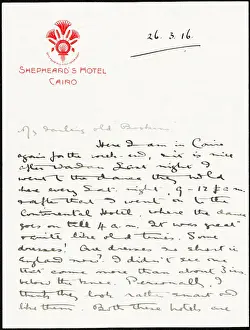 SHEPHEARD'S HOTEL
CAIRO
26.3.16.
My darling old
Here I am in Cairo
again for the week-end, it is nice
after Last night I
went to the dance they hold
here every Sat. night, 9-12 p.m.
& after that I went on to the
Continental Hotel, where the dance
goes on till 4 a.m. It was great
quite like old times. Some
dresses! Are dresses so short in
England now? I didn't see one
that came more than about 3 in
below the knee. Personally, I
think they look rather smart and
like them. Both these hotels are